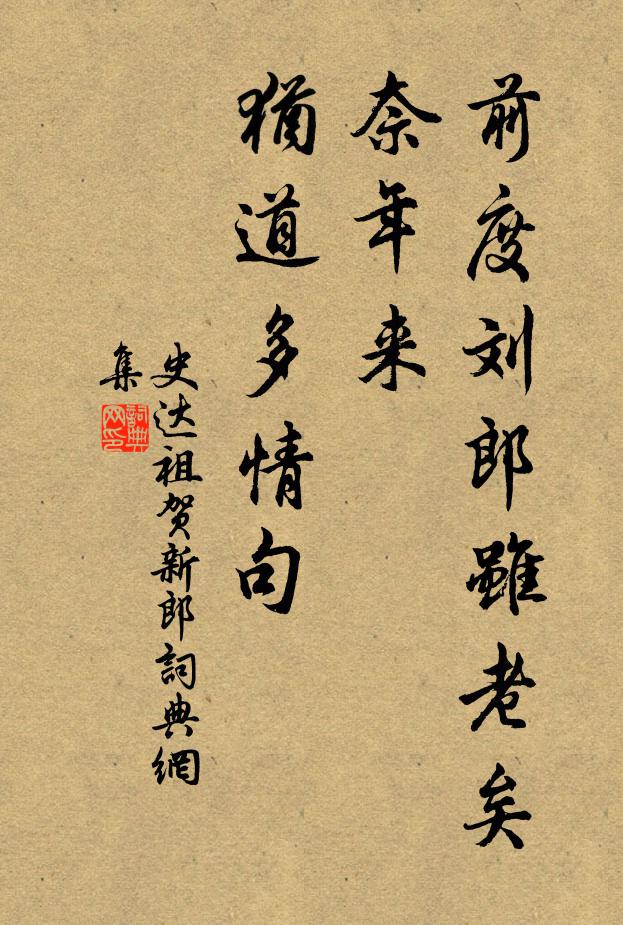 前度刘郎雖老矣
奈年来
猶道多情句
史达祖贺新郎詞典網
集
詞典
网印